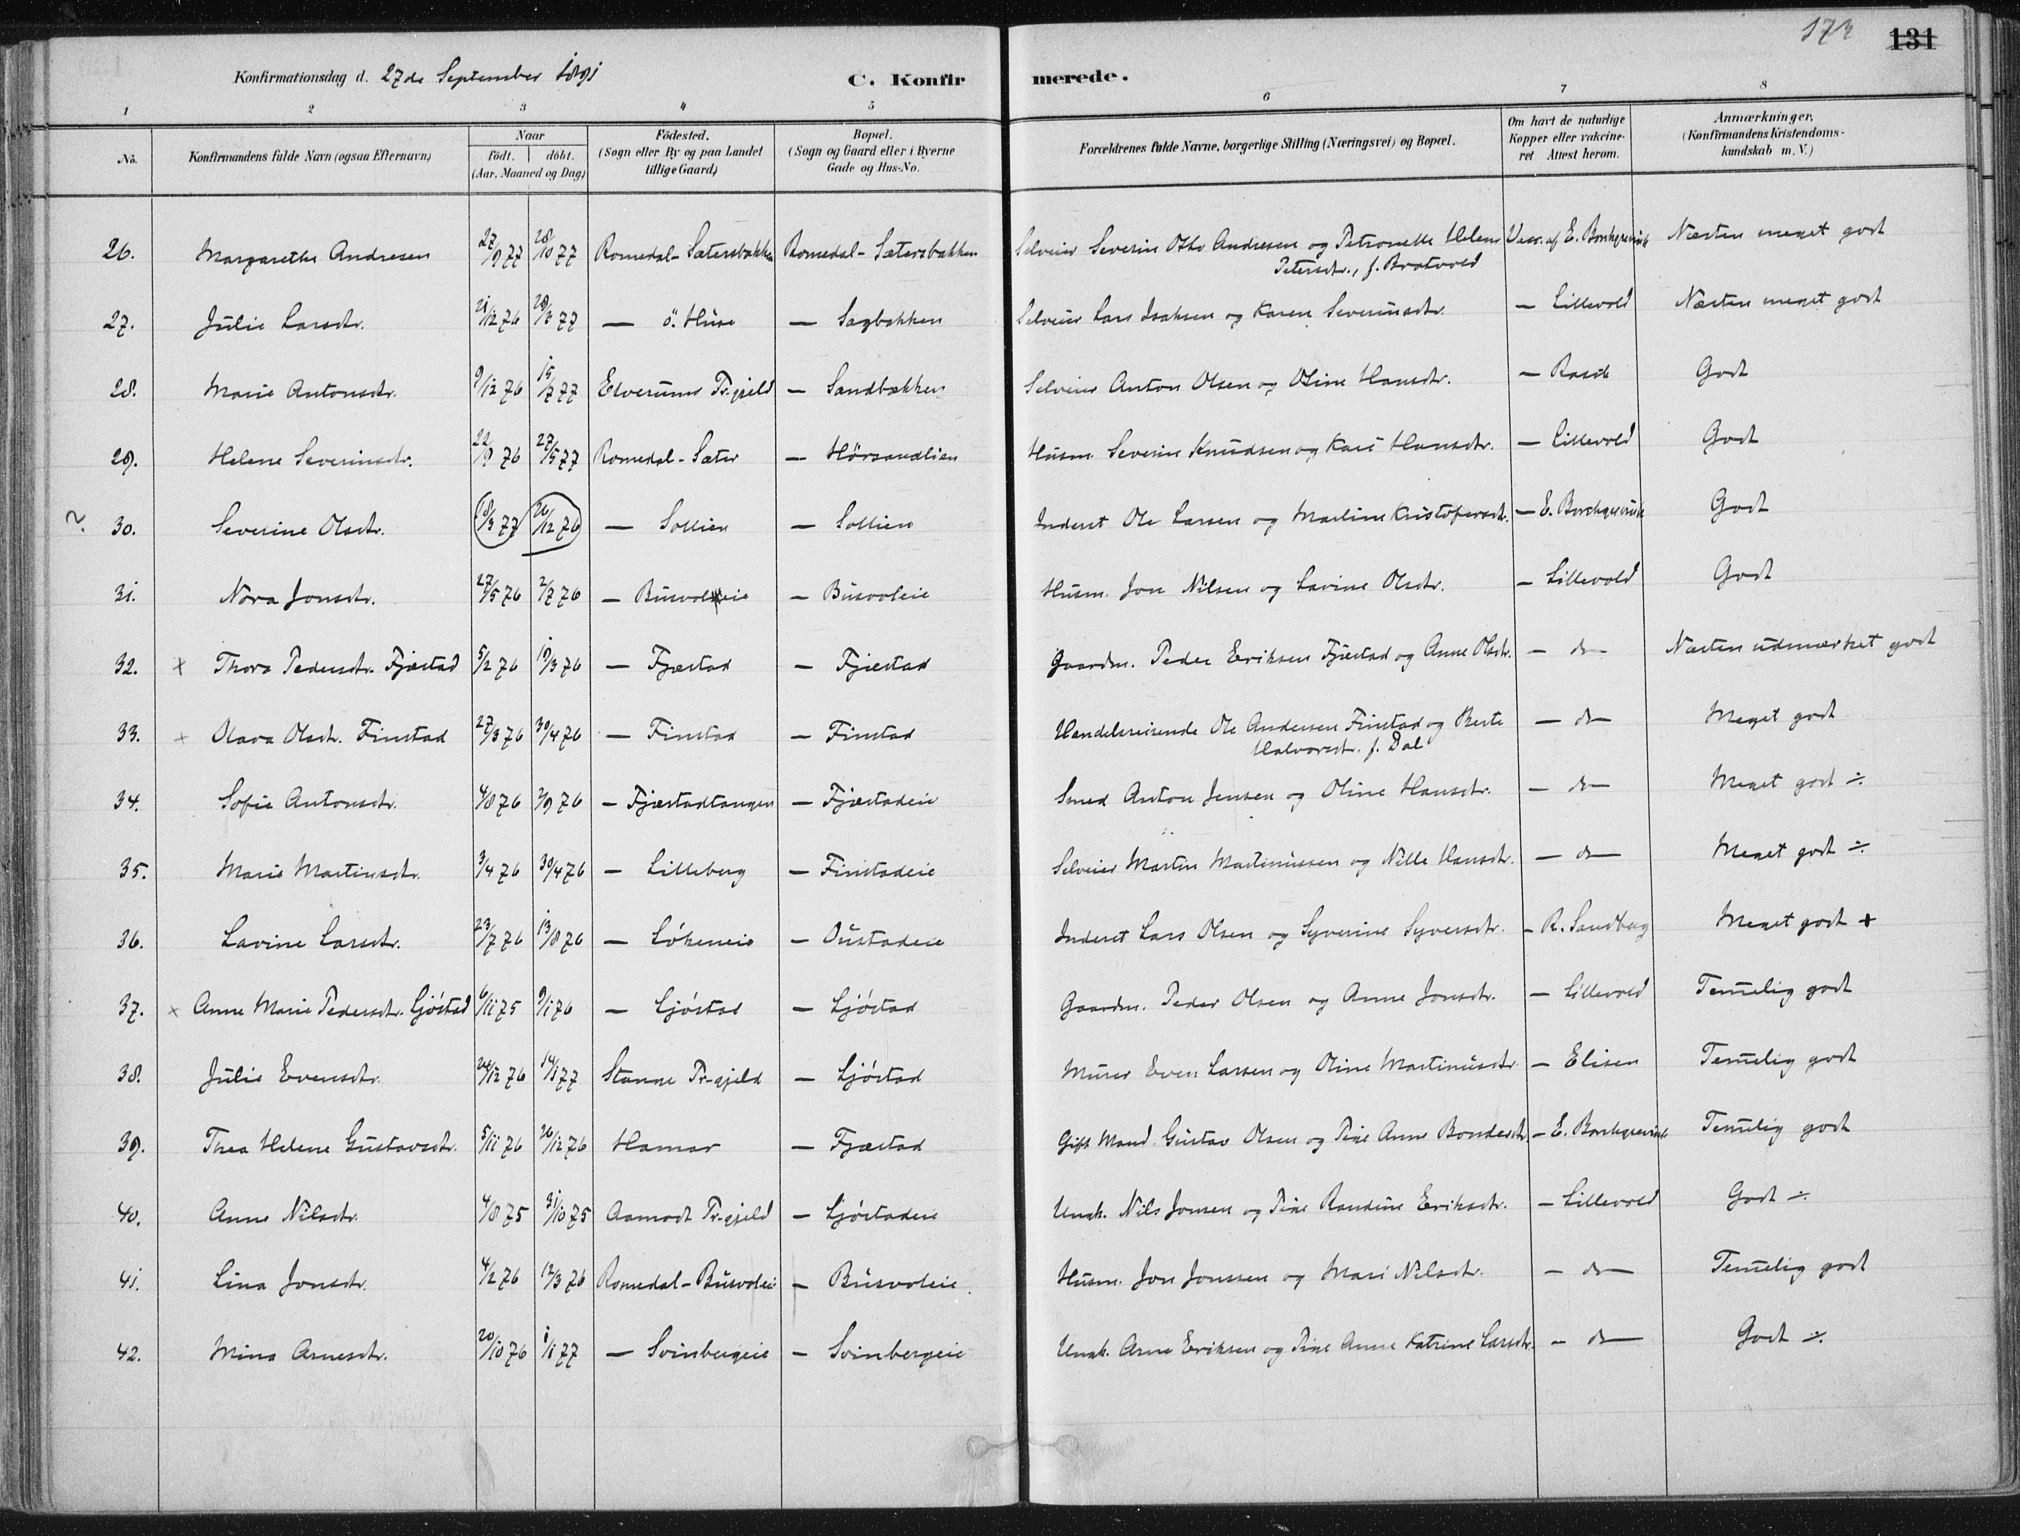 173 131
Konfirmationsdag d. 27de September 1891 C. Konfir merede.
1 2 3 4 5 6 7 8
No. Konfirmandens fulde Navn (ogsaa Efternavn) Naar födt. döbt. (Aar, Maaned og Dag) Födested. (Sogn eller By og paa Landet tillige Gaard) Bopæl. (Sogn og Gaard eller i Byerne Gade og Hus-No. Forældrenes fulde Navne, borgerlige Stilling (Næringsvei) og Bopæl. Om havt de naturlige Kopper eller vakcineret Attest herom. Anmærkninger. (Konfirmandens Kristendomskundskab m. V.)
26. Margarethe Andresen 27/9 77 28/10 77 Romedal - Sætersbakken Romedal - Sætersbakken Selveier Severin Otto Andresen og Petronelle Helene Vacc. af E. Borchgrevink Næsten meget godt
Petersdtr., f. Bratvold
27. Julie Larsdtr. 21/12 76 — ö. Huse — Sagbakken Selveier Lars Isaksen og Karen Severinsdtr. — Lillevold Næsten meget godt
28. Marie Antonsdtr. 9/12 76 15/7 77 Elverums Pr.gjeld — Sandbakken Selveier Anton Olsen og Oline Hansdtr. — Godt
29. Helene Severinsdtr. 22/9 76 27/5 77 Romedal - Sæter — Hörsandlien Husm. Severin Knudsen og Kari Hansdtr. — Lillevold Godt
? 30. Severine Olsdtr. 18/3 77 26/12 76 — Sollien — Sollien Inderst Ole Larsen og Marline Kristofersdtr. — E. Borchgrevink Godt
31. Nora Jonsdtr. 27/5 76 2/7 76 — Busvoleie — Busvoleie Husm. Jon Nilsen og Lavine Olsdtr. — Lillevold Godt
32. × Thora Pedersdtr. Fjæstad 5/2 76 19/3 76 — Fjæstad — Fjæstad Gaardm. Peder Eriksen Fjæstad og Anne Olsdtr. — do — Næsten udmærket godt
33. × Olava Olsdtr. Finstad 27/3 76 30/4 76 — Finstad — Finstad Handelsreisende Ole Andersen Finstad og Berte — do — Meget godt
Halvorsdtr. f. Dal
34. Sofie Antonsdtr. 4/8 76 3/9 76 — Fjæstadtangen — Fjæstadeie Smed Anton Jensen og Oline Hansdtr. — do — Meget godt ÷
35. Marie Martinsdtr. 3/4 76 30/4 76 — Lilleberg — Finstadeie Selveier Martin Martinussen og Nille Hansdtr. — do — Meget godt ÷
36. Lavine Larsdtr. 23/7 76 13/8 76 — Lökeneie — Oustadeie Inderst Lars Olsen og Syverine Syversdtr. — R. Sandberg Meget godt +
37. × Anne Marie Pedersdtr. Ljöstad 6/11 75 9/1 76 — Ljöstad — Ljöstad Gaardm. Peder Olsen og Anne Jonsdtr. — Lillevold Temelig godt
38. Julie Evensdtr. 24/12 76 14/1 77 Stange Pr-gjeld — Ljöstad Murer Even Larsen og Oline Martinusdtr. — Elisen Temelig godt
39. Thea Helene Gustavsdtr. 5/11 76 26/12 76 Hamar — Fjæstad Gift Mand Gustav Olsen og Pige Anne Bondesdtr. — E. Borchgrevink Temelig godt
40. Anne Nilsdtr. 4/8 75 31/10 75 Aamodt Pr-gjeld — Ljöstadeie Ungk. Nils Jonsen og Pige Randine Eriksdtr. — Lillevold Godt ÷
41. Lina Jonsdtr. 4/2 76 12/3 76 Romedal - Busvoleie — Busvoleie Husm. Jon Jonssen og Mari Nilsdtr. — do — Temelig godt
42. Mina Arnesdtr. 20/10 76 1/1 77 — Svinbergeie — Svinbergeie Ungk. Arne Eriksen og Pige Anne Katrine Larsdtr. — do — Godt ÷